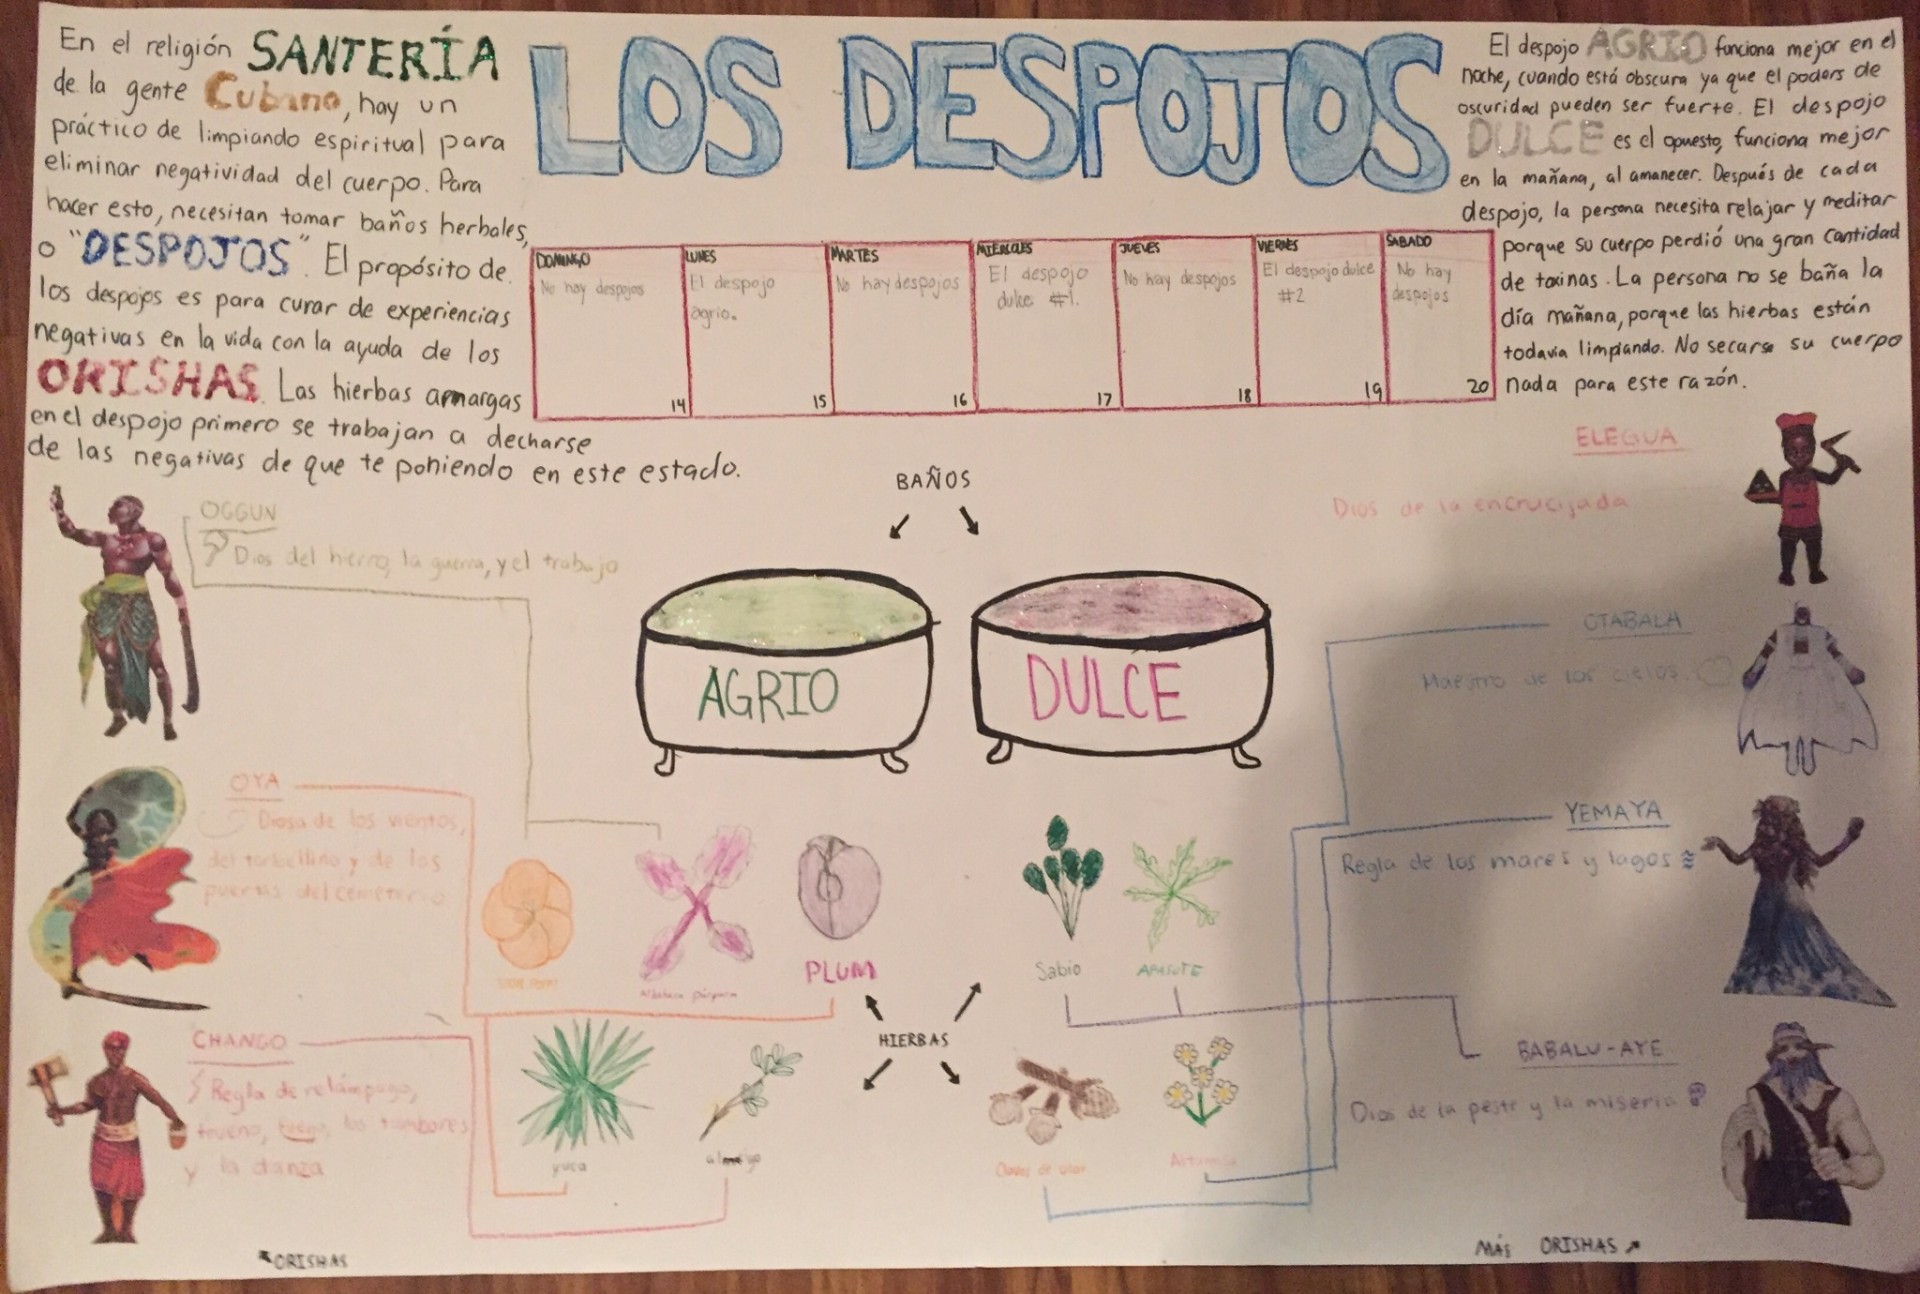 LOS DESPOJOS
En el religión SANTERÍA
de la gente Cubano, hay un
práctico de limpiando espiritual para
eliminar negatividad del cuerpo. Para
hacer esto, necesitan tomar baños herbales,
o "DESPOJOS". El propósito de
los despojos es para curar de experiencias
negativas en la vida con la ayuda de los
ORISHAS. Las hierbas amargas
en el despojo primero se trabajan a decharse
de las negativas de que te poniendo en este estado.
El despojo AGRIO funciona mejor en el
noche, cuando está obscura ya que el poders de
oscuridad pueden ser fuerte. El despojo
DULCE es el opuesto, funciona mejor
en la mañana, al amanecer. Después de cada
despojo, la persona necesita relajar y meditar
porque su cuerpo perdió una gran cantidad
de toxinas. La persona no se baña la
día mañana, porque las hierbas están
todavia limpiando. No secarse su cuerpo
nada para este razón.
DOMINGO
No hay despojos
14
LUNES
El despojo
agrio.
15
MARTES
No hay despojos
16
MIÉRCOLES
El despojo
dulce #1.
17
JUEVES
No hay despojos
18
VIERNES
El despojo dulce
#2
19
SABADO
No hay
despojos
20
BAÑOS
AGRIO
DULCE
OGGUN
Dios del hierro, la guerra, y el trabajo
OYA
Diosa de los vientos,
del torbellino y de las
puertas del cementerio
CHANGO
Regla de relámpago,
trueno, fuego, los tambores
y la danza
ORISHAS
ELEGUA
Dios de la encrucijada
OTABALA
Maestro de los cielos.
YEMAYA
Regla de los mares y lagos
BABALU-AYE
Dios de la peste y la miseria
MÁS ORISHAS
Albahaca púrpura
PLUM
Sabio
APASOTE
HIERBAS
yuca
Clavos de olor